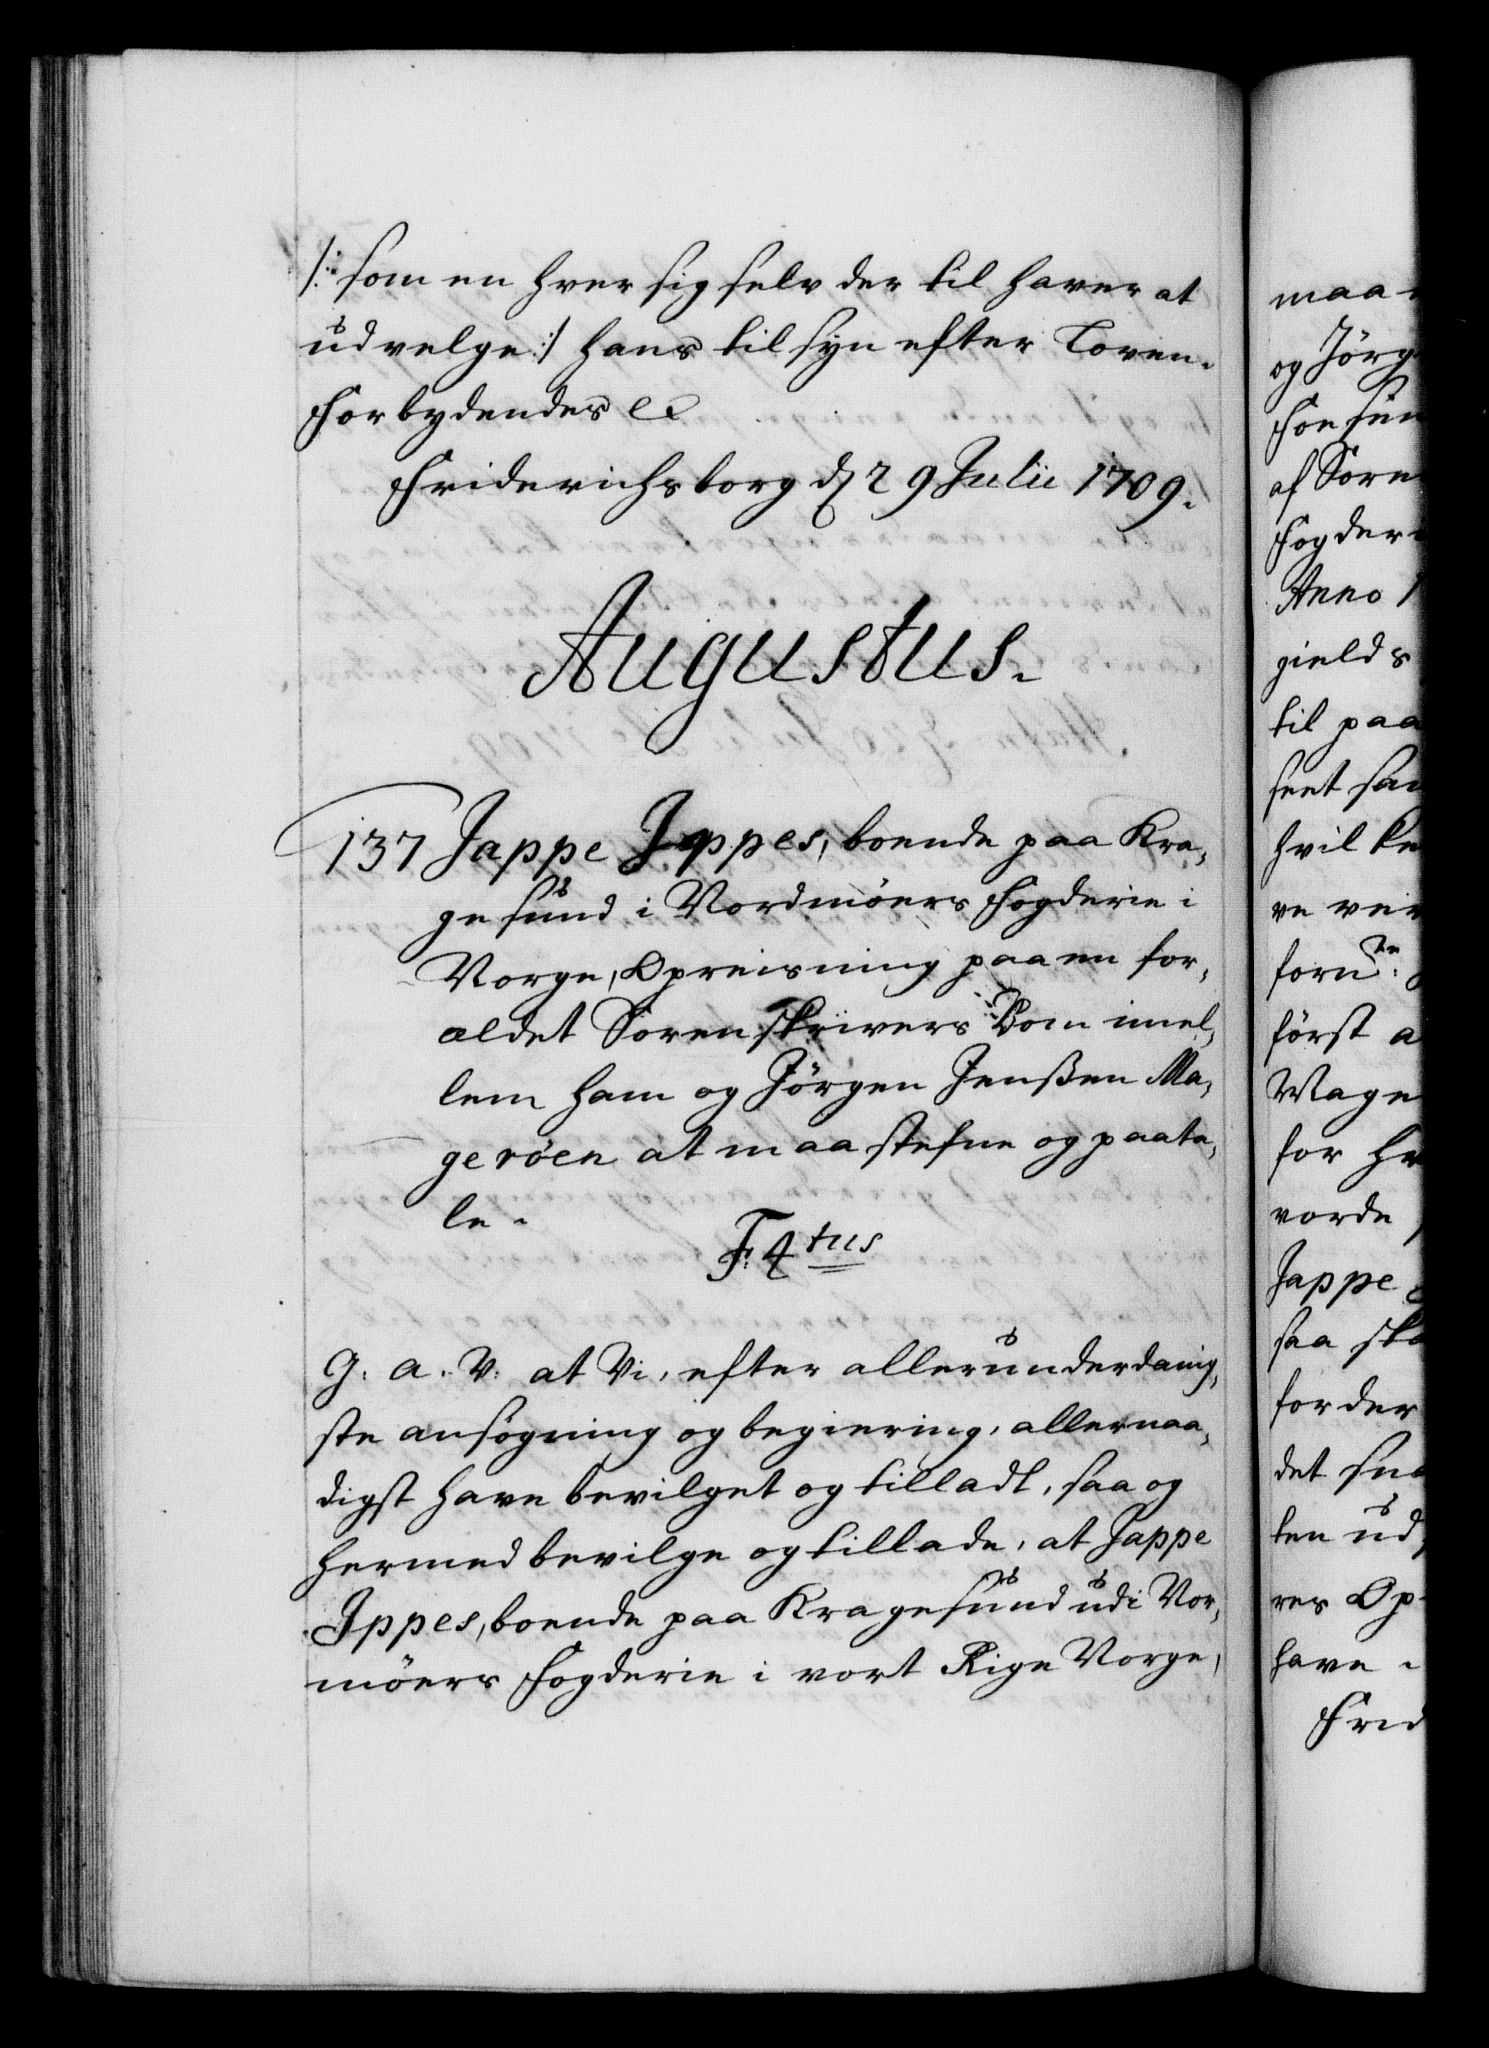 /: som en hver sig selv der til haver at
udvelge :/ hans tilsyn efter Loven.
Forbydendes etc
Friderichsborg d 29 Julii 1709.
Augustus.
137 Jappe Ippes, boende paa Kra,
gesund i Nordmöers Fogderie i
Norge, Opreisning paa en for,
aldet Sorenskrivers Dom imel,
lem ham og Jörgen Jenßen Ma,
geröen at maa stefne og paata,
le.
F: 4tus
G. A. V: at Vi, efter allerunderdanig,
ste ansögning og begiering, allernaa,
digst have bevilget og tilladt, saa og
hermed bevilge og tillade, at Jappe
Ippes, boende paa Kragesund udi Nor,
möers Fogderie i vort Rige Norge,
maa
og Jörg
af Sore
Fogder
Anno 1
gields
til paa
seet sa
hvilke
forn te:
först a
Mage
for h
vorde
Jappe
saa ska
for der
det
ten ud,
res Op-
have
Frid